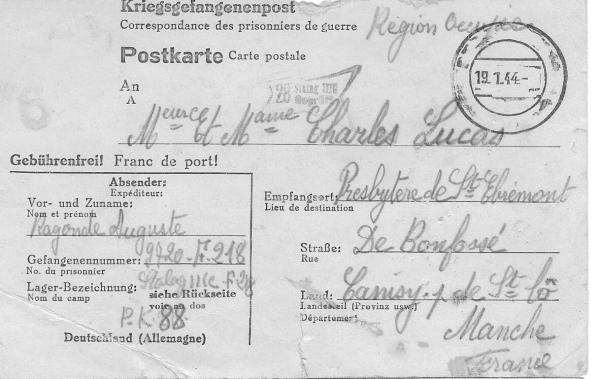 Kriegsgefangenenpost
Correspondance des prisonniers de guerre
Région
Postkarte Carte postale
19.1.44.-
An
A
28 Stalag
Geprüft
Meur Et Mame Charles Lucas
Gebührenfrei! Franc de port!
Absender:
Expéditeur:
Vor- und Zuname:
Nom et prénom
Ragonde Auguste
Gefangenennummer:
No. du prisonnier
Lager-Bezeichnung:
Nom du camp
siehe Rückseite
voir au dos
88
Deutschland (Allemagne)
Empfangsort: Presbytère de St Ebremont
Lieu de destination
Straße: De Bonfossé
Rue
Land: Canisy p de St Lô
Landesteil (Provinz usw.)
Département
Manche
France